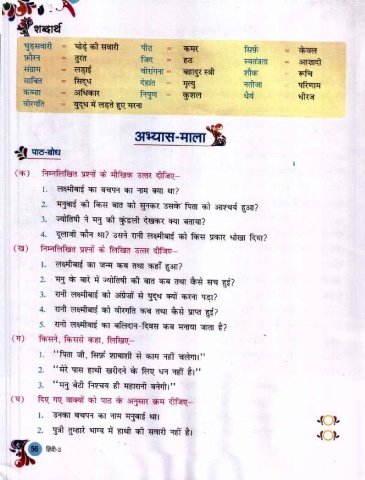 शब्दार्थ
घुड़सवारी = घोड़े की सवारी पीठ = कमर सिर्फ़ = केवल
फ़ौरन = तुरंत जिद = हठ स्वतंत्रता = आज़ादी
संग्राम = लड़ाई वीरांगना = बहादुर स्त्री शौक = रूचि
साबित = सिद्ध देहांत = मृत्यु नतीजा = परिणाम
कब्जा = अधिकार निपुण = कुशल धैर्य = धीरज
वीरगति = युद्ध में लड़ते हुए मरना
अभ्यास-माला
पाठ-बोध
(क) निम्नलिखित प्रश्नों के मौखिक उत्तर दीजिए–
1. लक्ष्मीबाई का बचपन का नाम क्या था?
2. मनुबाई की किस बात को सुनकर उसके पिता को आश्चर्य हुआ?
3. ज्योतिषी ने मनु की कुंडली देखकर क्या बताया?
4. दूलाजी कौन था? उसने रानी लक्ष्मीबाई को किस प्रकार धोखा दिया?
(ख) निम्नलिखित प्रश्नों के लिखित उत्तर दीजिए–
1. लक्ष्मीबाई का जन्म कब तथा कहाँ हुआ?
2. मनु के बारे में ज्योतिषी की बात कब तथा कैसे सच हुई?
3. रानी लक्ष्मीबाई को अंग्रेज़ों से युद्ध क्यों करना पड़ा?
4. रानी लक्ष्मीबाई को वीरगति कब तथा कैसे प्राप्त हुई?
5. रानी लक्ष्मीबाई का बलिदान-दिवस कब मनाया जाता है?
(ग) किसने, किससे कहा, लिखिए–
1. "पिता जी, सिर्फ़ शाबाशी से काम नहीं चलेगा।"
2. "मेरे पास हाथी खरीदने के लिए धन नहीं है।"
3. "मनु बेटी निश्चय ही महारानी बनेगी।"
(घ) दिए गए वाक्यों को पाठ के अनुसार क्रम दीजिए–
1. उनका बचपन का नाम मनुबाई था।
2. पुत्री तुम्हारे भाग्य में हाथी की सवारी नहीं है।
56 हिंदी-3